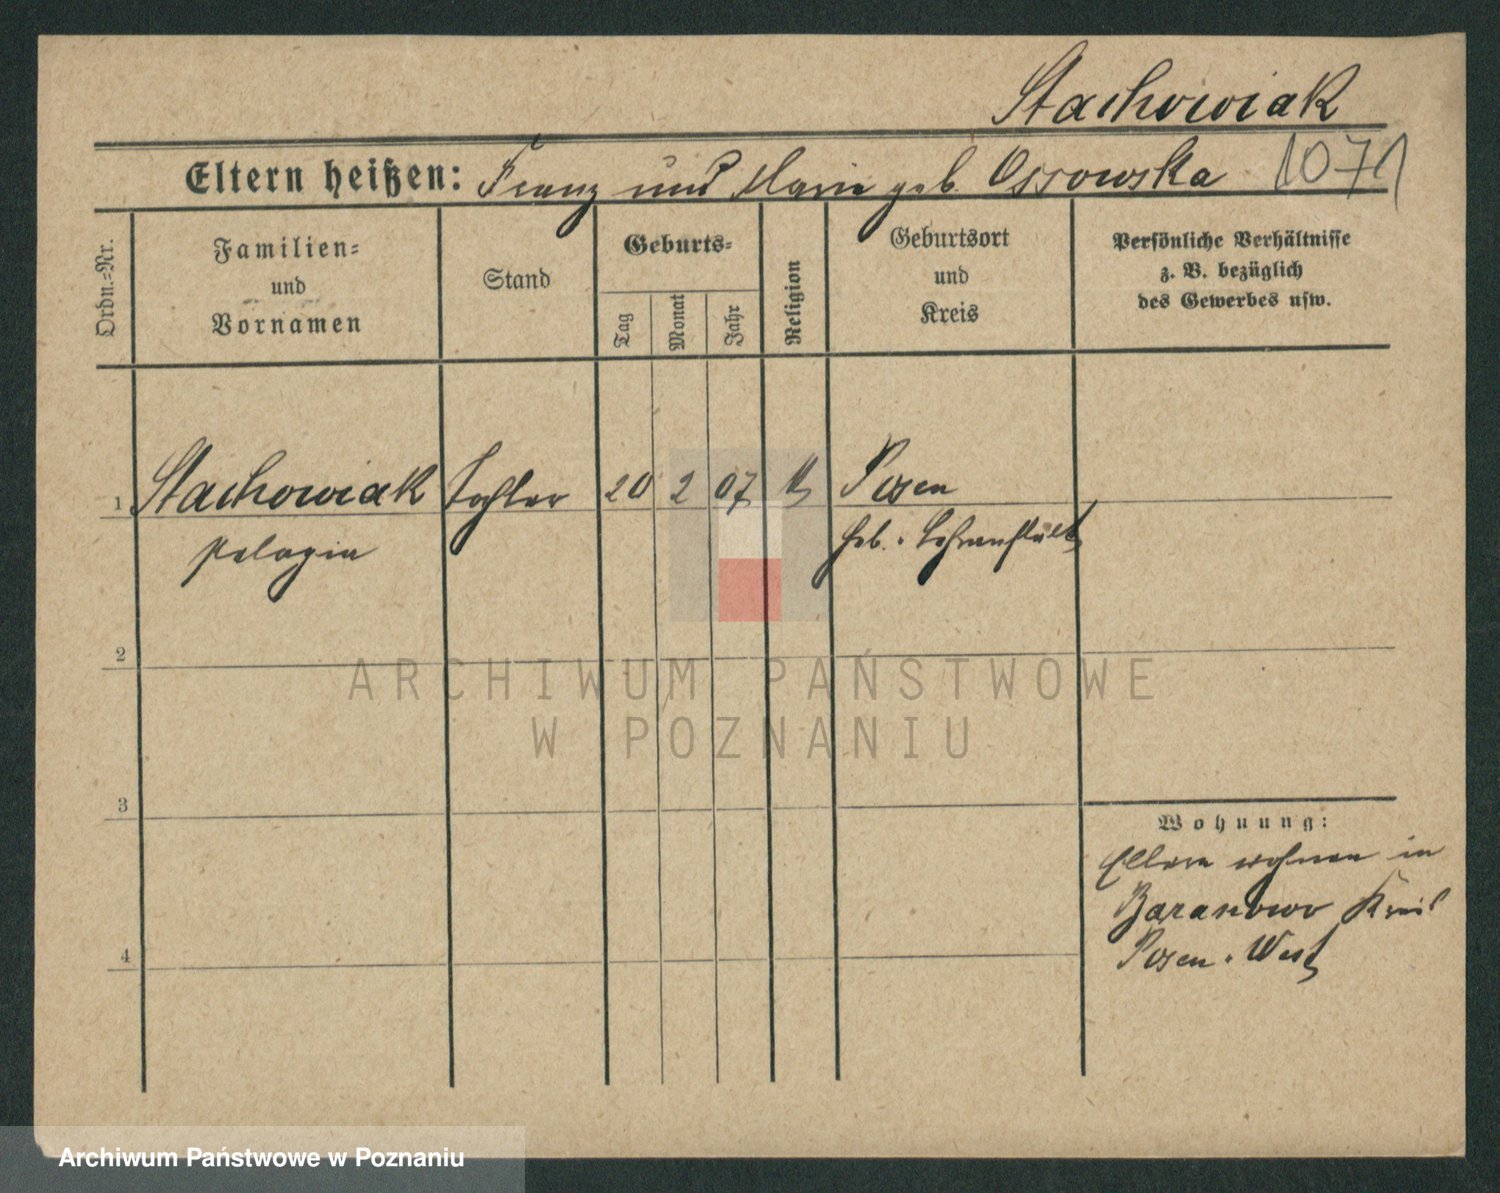 Stachowiak
Eltern heißen: Franz und Marie geb. Ossowska 1071
Ordn.-Nr.
Familien-
und
Vornamen
Stand
Geburts-
Tag
Monat
Jahr
Religion
Geburtsort
und
Kreis
Persönliche Verhältnisse
z. B. bezüglich
des Gewerbes usw.
1 Stachowiak Tochter 20 2 07 Posen
Pelagia Heb. Lehranstalt
2
3
4
Wohnung:
Eltern wohnen in
Baranowo Kreis
Posen-West
ARCHIWUM PAŃSTWOWE
W POZNANIU
Archiwum Państwowe w Poznaniu